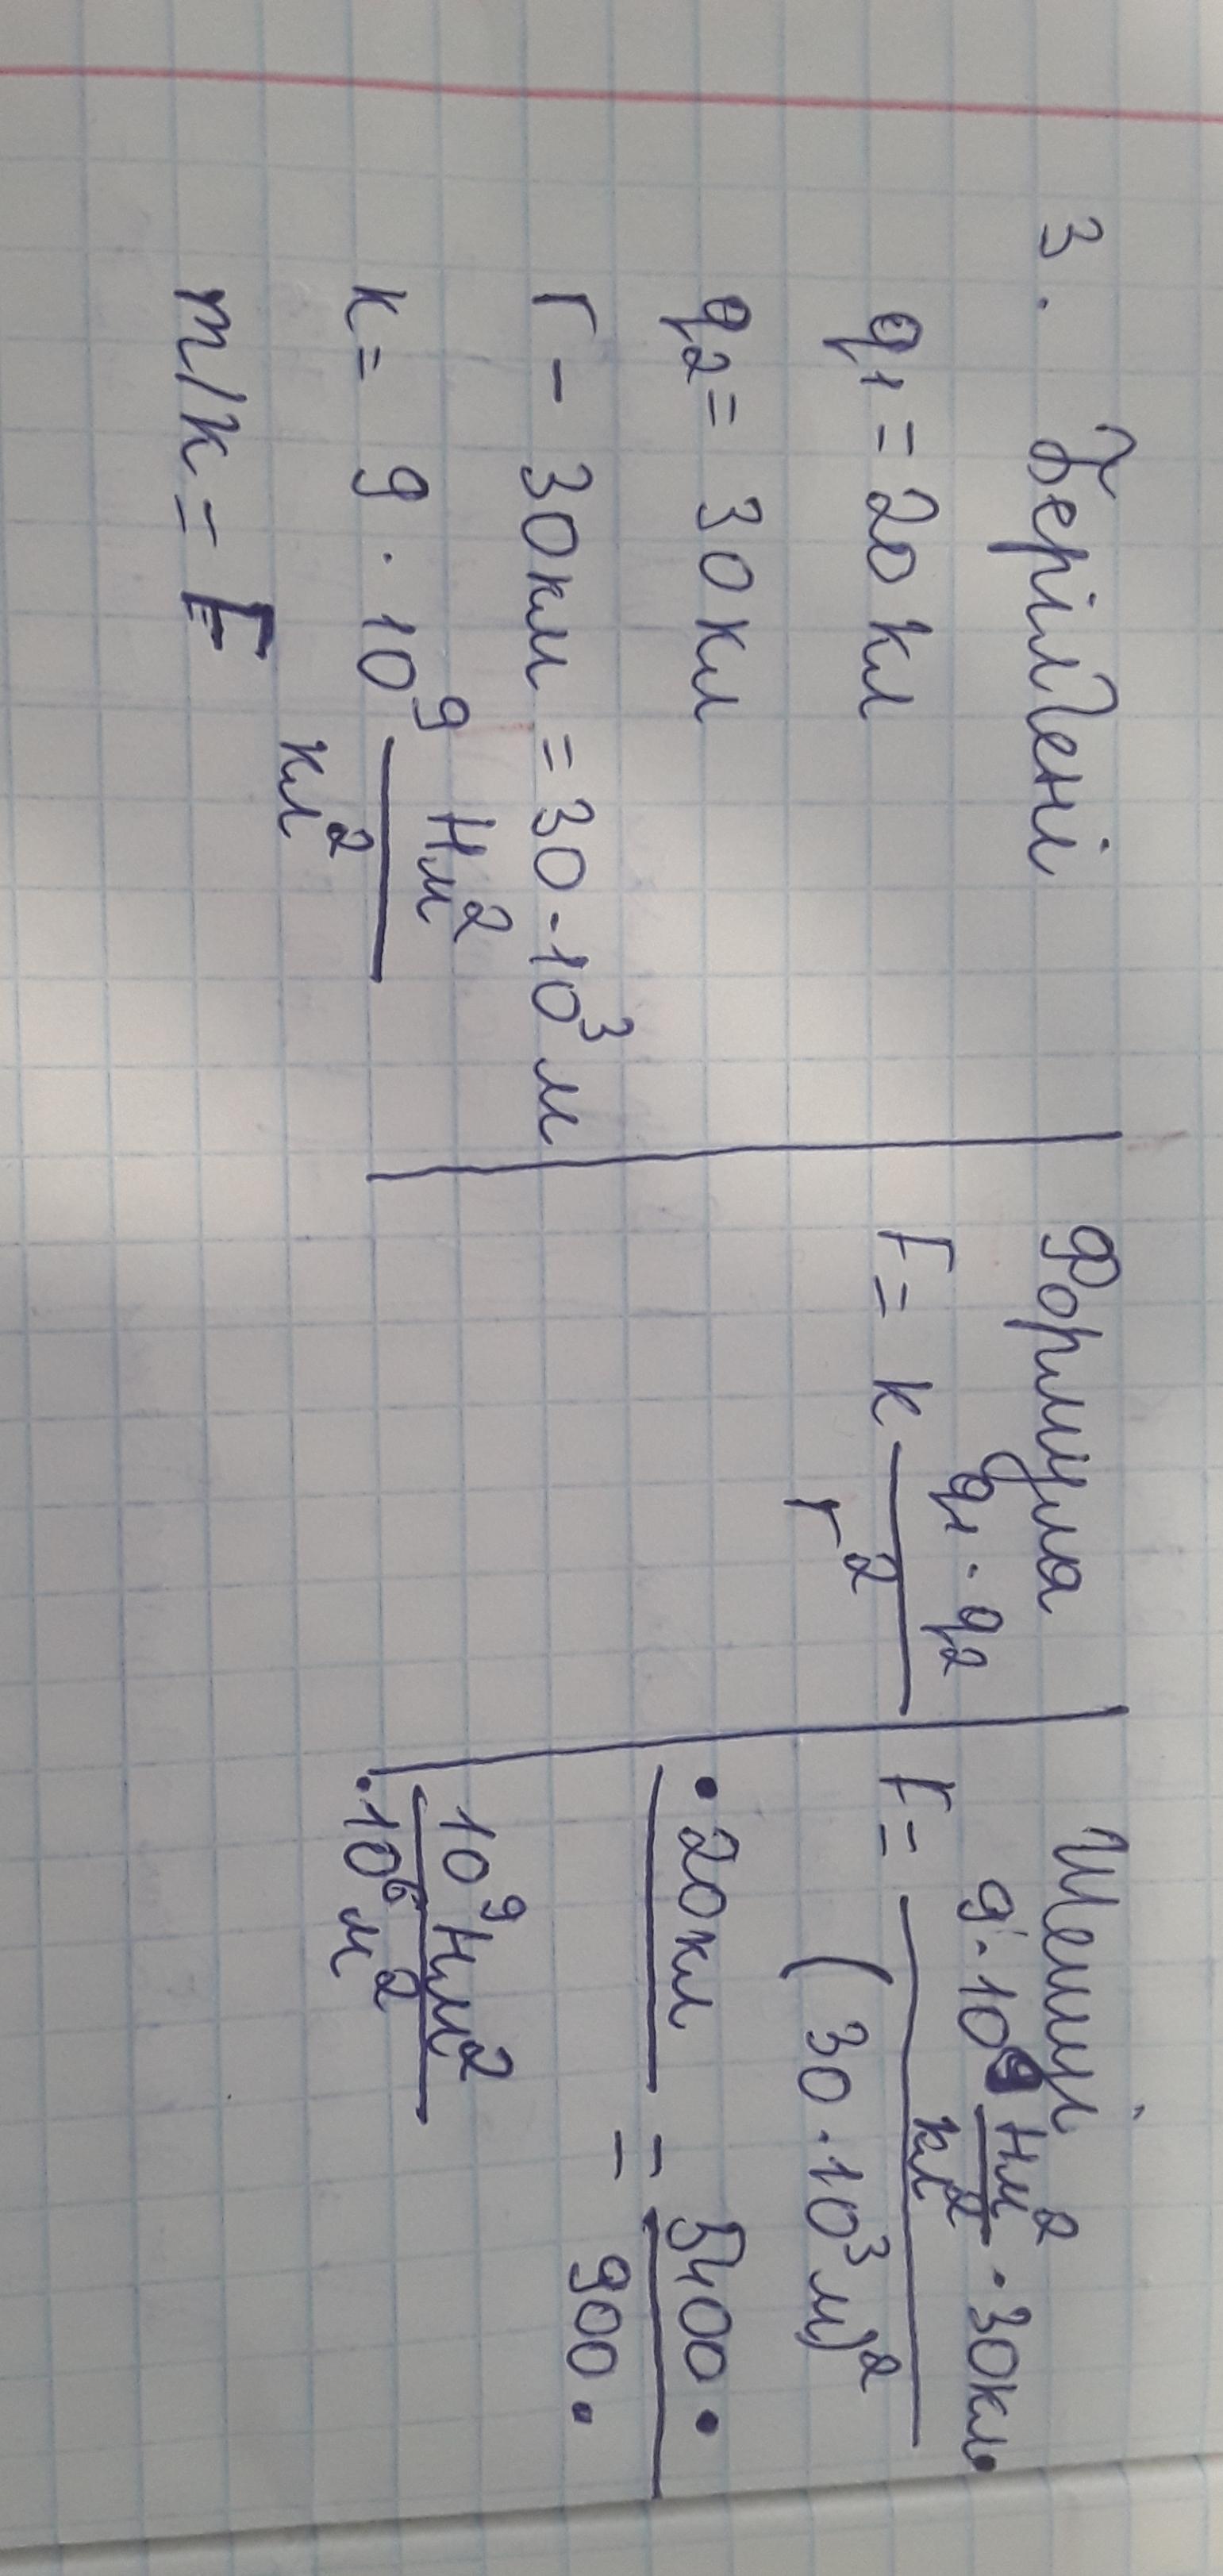 3. Берілгені
q₁ = 20 кл
q₂ = 30 кл
r – 30км = 30 · 10³ м
к = 9 · 10⁹ Нм²/кл²
т/к = F
Формула
F = к q₁ · q₂ / r²
Шешуі
F = 9 · 10⁹ Нм²/кл² · 30кл ·
(30 · 10³ м)²
· 20кл = 5400 ·
= 900 ·
10⁹ Нм²
· 10⁶ м²